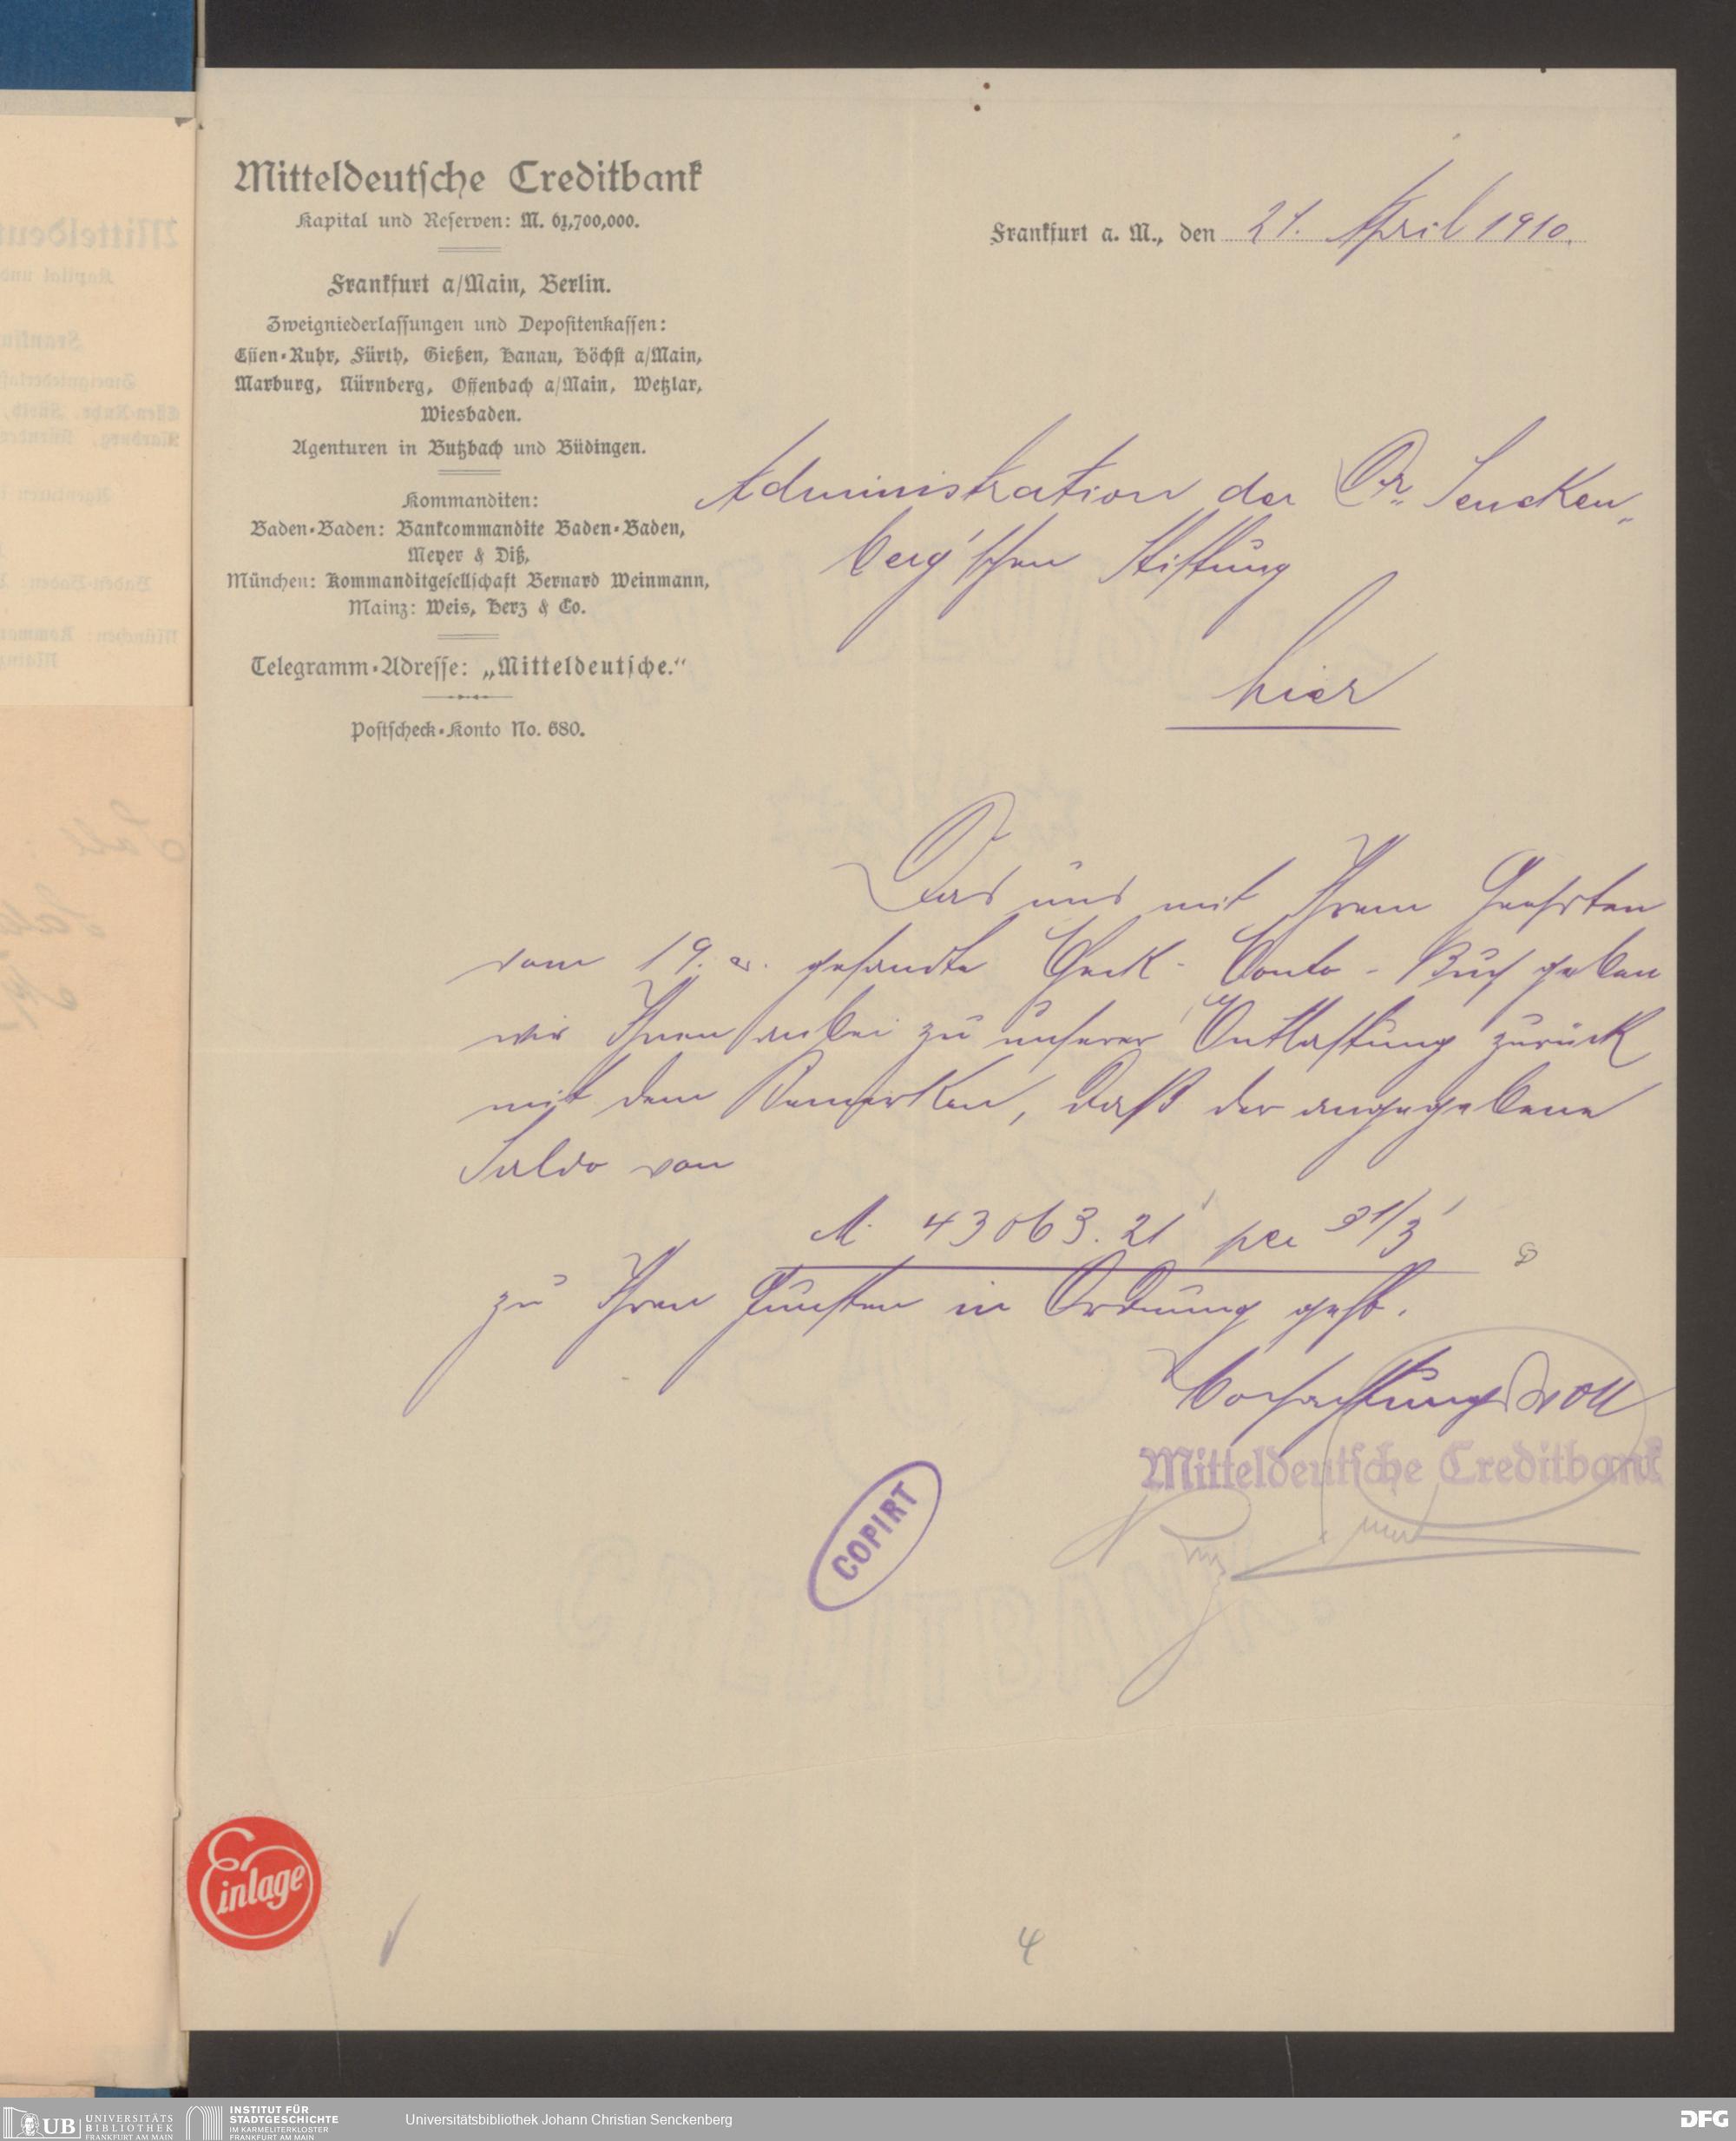 Mitteldeutsche Creditbank
Kapital und Reserven: M. 61,700,000.
Frankfurt a/Main, Berlin.
Zweigniederlassungen und Depositenkassen:
Essen-Ruhr, Fürth, Gießen, Hanau, Höchst a/Main,
Marburg, Nürnberg, Offenbach a/Main, Wetzlar,
Wiesbaden.
Agenturen in Butzbach und Büdingen.
Kommanditen:
Baden-Baden: Bankcommandite Baden-Baden,
Meyer & Diß,
München: Kommanditgesellschaft Bernard Weinmann,
Mainz: Weis, Herz & Co.
Telegramm-Adresse: „Mitteldeutsche.“
Postscheck-Konto No. 680.
Frankfurt a. M., den 21. April 1910.
Administration der Dr. Sencken„
berg'schen Stiftung
hier
Das uns mit Ihrem Geehrten
vom 19. cr. gesandte Check-Conto-Buch geben
wir Ihnen anbei zu unserer Entlastung zurück
mit dem Bemerken, daß der angegebene
Saldo von
M. 43063.21 per 31/3
zu Ihren Gunsten in Ordnung geht.
Hochachtungsvoll
Mitteldeutsche Creditbank
COPIRT
Einlage
4
UB UNIVERSITÄTS
BIBLIOTHEK
FRANKFURT AM MAIN
INSTITUT FÜR
STADTGESCHICHTE
IM KARMELITERKLOSTER
FRANKFURT AM MAIN
Universitätsbibliothek Johann Christian Senckenberg
DFG